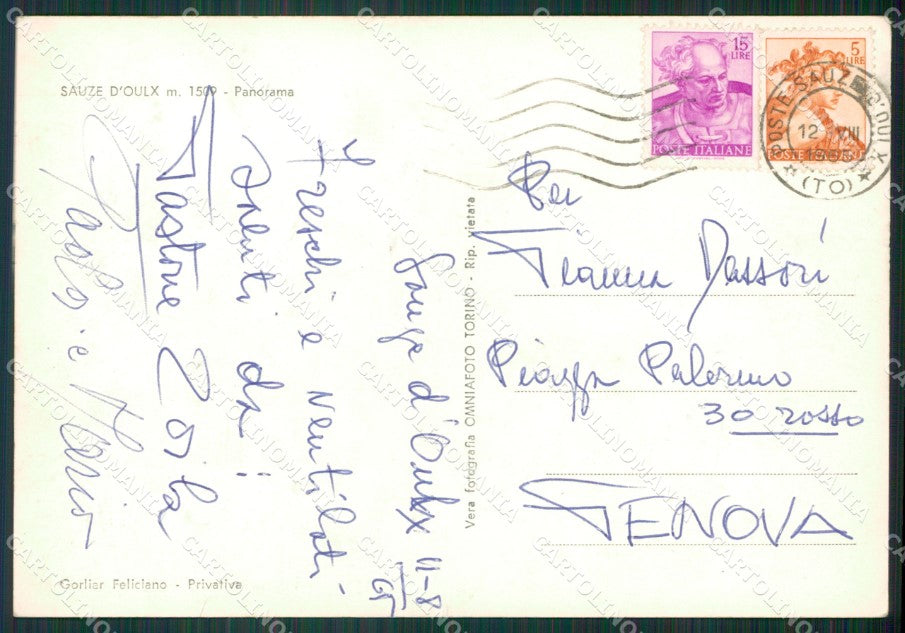 SAUZE D'OULX m. 1509 - Panorama
15
LIRE
POSTE ITALIANE
5
LIRE
POSTE ITALIANE
POSTE SAUZE D'OULX
12 VIII
(TO)
Sauze d'Oulx 11-8
65
Freschi e ventilati
saluti da:
Gastone Rosla
Paolo e Maria
Vera fotografia OMNIAFOTO TORINO - Rip. vietata
Gianna Massoni
Piazza Palermo
30 rosso
GENOVA
Gorlier Feliciano - Privativa
CARTOLINOMANIA